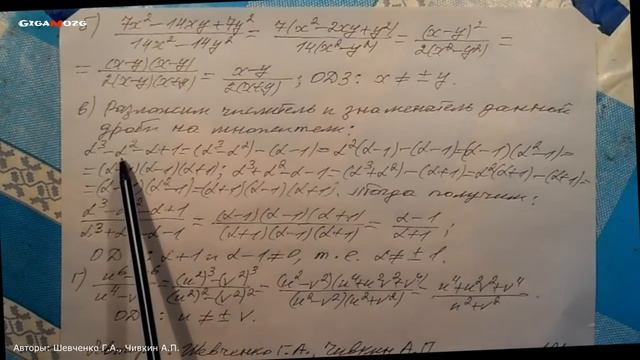 GIGAMOZG
б) (7x²-14xy+7y²)/(14x²-14y²) = 7(x²-2xy+y²)/14(x²-y²) = (x-y)²/2(x²-y²) =
= (x-y)(x-y)/2(x-y)(x+y) = (x-y)/2(x+y); ОДЗ: x ≠ ± y.
в) Разложим числитель и знаменатель данной
дроби на множители:
α³-α²-α+1=(α³-α²)-(α-1)=α²(α-1)-(α-1)=(α-1)(α²-1)=
(α-1)(α+1); α³+α²-α-1=(α³+α²)-(α+1)=α²(α+1)-(α+1)=
(α²-1)=(α+1)(α-1)(α+1). Тогда получим:
α-1)(α-1)(α+1)/(α+1)(α-1)(α+1) = (α-1)/(α+1);
ОД : α+1 и α-1≠0, т.е. α≠±1.
г) = (u²)³-(v²)³/(u²)²-(v²)² = (u²-v²)(u⁴+u²v²+v⁴)/(u²-v²)(u²+v²) = (u⁴+u²v²+v⁴)/(u²+v²)
ОД : u ≠ ± v.
Шевченко Г.А., Чивкин А.П.
Авторы: Шевченко Г.А., Чивкин А.П.